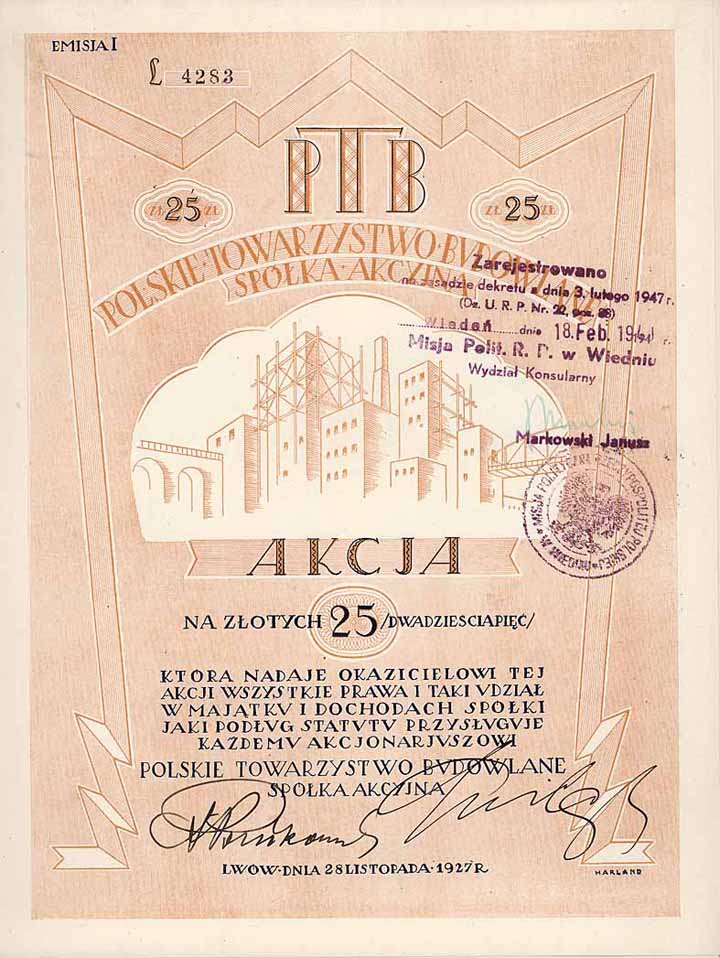 EMISJA I
L 4283
PTB
ZŁ 25 ZŁ
ZŁ 25 ZŁ
POLSKIE·TOWARZYSTWO·BUDOWLANE
SPÓŁKA·AKCYJNA
Zarejestrowano
na zasadzie dekretu z dnia 3. lutego 1947 r.
(Dz. U. R. P. Nr. 22, poz. 88)
Wiedeń dnia 18. Feb. 194
Misja Polit. R. P. w Wiedniu
Wydział Konsularny
Markowski Janusz
MISJA POLITYCZNA RZECZYPOSPOLITEJ POLSKIEJ
W WIEDNIU
AKCJA
NA ZŁOTYCH 25 /DWADZIEŚCIAPIĘĆ/
KTÓRA NADAJE OKAZICIELOWI TEJ
AKCJI WSZYSTKIE PRAWA I TAKI VDZIAŁ
W MAJĄTKV I DOCHODACH SPÓŁKI
JAKI PODŁVG STATVTV PRZYSŁVGVJE
KAŻDEMV AKCJONARJVSZOWI
POLSKIE TOWARZYSTWO BVDOWLANE
SPÓŁKA AKCYJNA
LWÓW·DNIA 28 LISTOPADA·1927 R
HARLAND